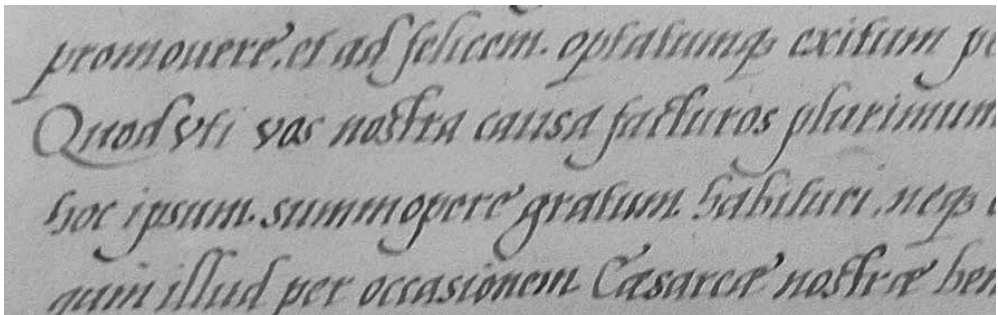 promouere, et ad felicem. optatumq; exitum pe
Quod vti vos nostra causa facturos plurimum
hoc ipsum. summopere gratum. habituri. neq;
quin illud per occasionem Cæsareæ nostræ ben